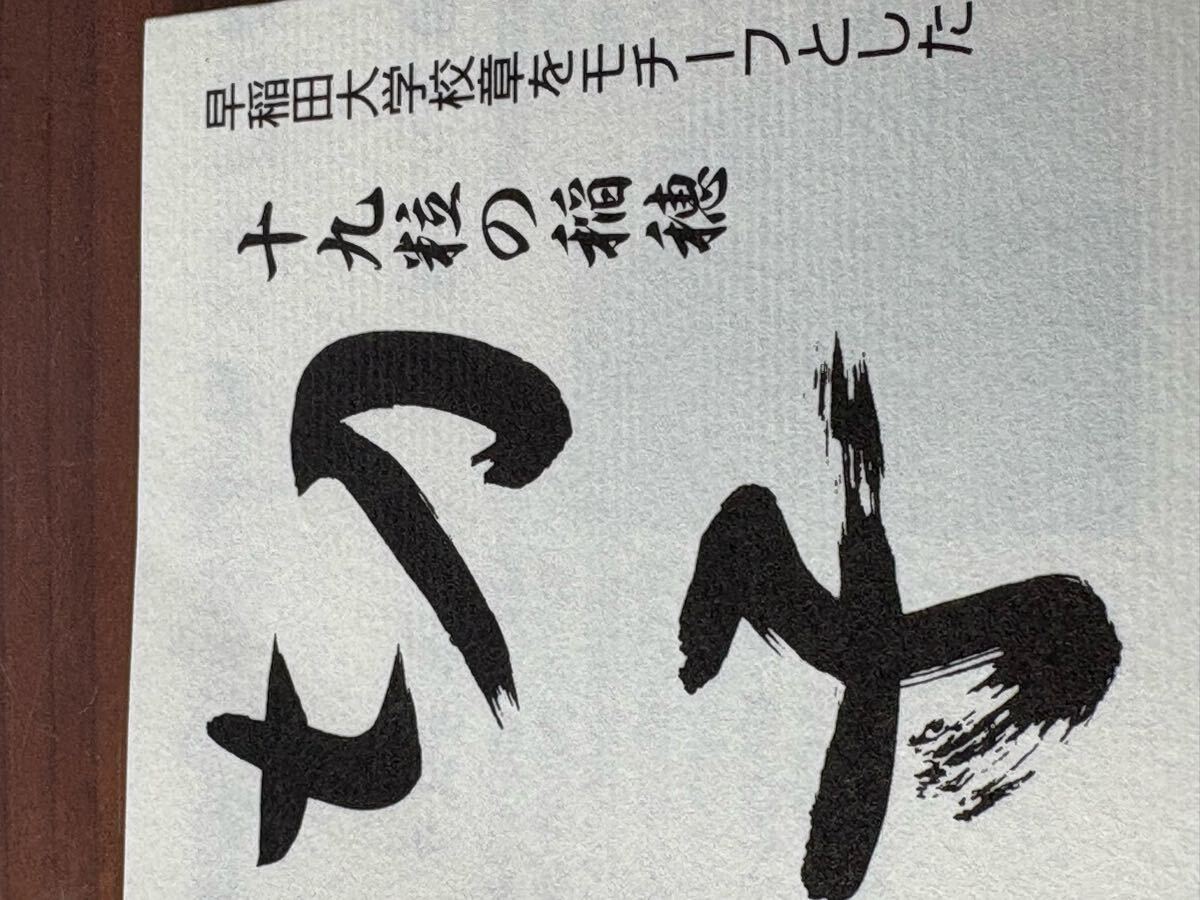 早稲田大学校章をモチーフとした
十九粒の稲穂
切子